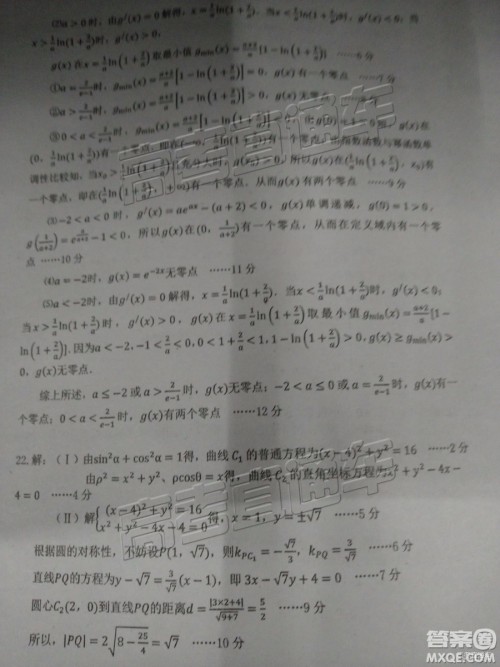 ⑵a＞0时，由g′(x)=0解得，x=1/a ln(1+2/a)．当x＜1/a ln(1+2/a)时，g′(x)＜0；当
x＞1/a ln(1+2/a)时，g′(x)＞0.
g(x)在x=1/a ln(1+2/a)取最小值g_min(x)=(a+2)/a[1−ln(1+2/a)] ……5分
①a=2/(e−1)时，g_min(x)=(a+2)/a[1−ln(1+2/a)]=0，g(x)有一个零点 ……7分
②a＞2/(e−1)时，g_min(x)=(a+2)/a[1−ln(1+2/a)]＞0，g(x)无零点
③0＜a＜2/(e−1)时，g_min(x)=(a+2)/a[1−ln(1+2/a)]＜0，g(x)在
(0，1/a ln(1+2/a))有一个零点
调性比较知，当x₀＞1/a ln(1+2/a)且充分大时，g(x₀)＞0，所以g(x)在(1/a ln(1+2/a)，x₀)有
一个零点，即在(1/a ln(1+2/a)，+∞)有一个零点．从而g(x)有两个零点 ……9分
⑶−2＜a＜0时，g′(x)=ae^(ax)−(a+2)＜0，g(x)单调递减，g(0)=1＞0，
g(1/(a+2))=e^(a/(a+2))−1＜0，所以g(x)在(0，1/(a+2))有一个零点．从而在定义域内有一个零
点 ……10分
⑷a=−2时，g(x)=e^(−2x)无零点 ……11分
⑸a＜−2时，由g′(x)=0解得，x=1/a ln(1+2/a)．当x＜1/a ln(1+2/a)时，g′(x)＜0；
当x＞1/a ln(1+2/a)时，g′(x)＞0，g(x)在x=1/a ln(1+2/a)取最小值g_min(x)=(a+2)/a[1−
ln(1+2/a)].因为a＜−2，−1＜2/a＜0，0＜1+2/a＜1，1−ln(1+2/a)＞0，g(x)≥g_min(x)＞
0，g(x)无零点．
综上所述，a≤−2或a＞2/(e−1)时，g(x)无零点；−2＜a≤0或a=2/(e−1)时，g(x)有一
个零点；0＜a＜2/(e−1)时，g(x)有两个零点 ……12分
22.解：(Ⅰ)由sin²α+cos²α=1得，曲线C₁的普通方程为(x−4)²+y²=16 ……2分
由ρ²=x²+y²、ρcosθ=x得，曲线C₂的直角坐标方程为x²+y²−4x−
4=0 ……4分
(Ⅱ)解{(x−4)²+y²=16 x²+y²−4x−4=0得，x=1，y=±√7 ……5分
根据圆的对称性，不妨设P(1，√7)，则k_PC₁=−√7/3，k_PQ=3/√7 ……6分
直线PQ的方程为y−√7=3/√7(x−1)，即3x−√7y+4=0 ……7分
圆心C₂(2，0)到直线PQ的距离d=|3×2+4|/√(9+7)=5/2 ……9分
所以，|PQ|=2√(8−25/4)=√7 ……10分
高考直通车
高考直通车
答案圈
MXQE.COM